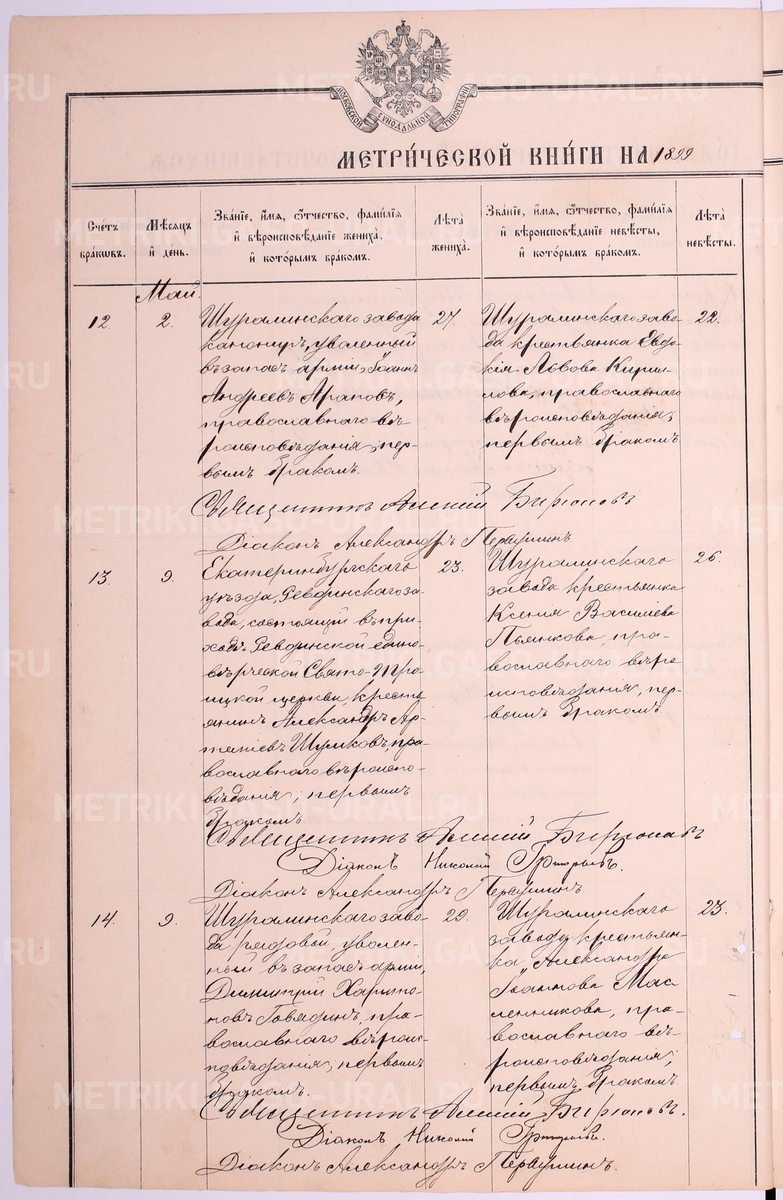 МОСКОВСКОЙ СѴНОДАЛЬНОЙ ТИПОГРАФІИ
МЕТРИ́ЧЕСКОЙ КНИ́ГИ НА 1899
Счетъ браковъ.
Мѣсяцъ и день.
Званіе, имя, отчество, фамилія и вѣроисповѣданіе жениха, и которымъ бракомъ.
Лѣта жениха.
Званіе, имя, отчество, фамилія и вѣроисповѣданіе невѣсты, и которымъ бракомъ.
Лѣта невѣсты.
Май.
12.
2.
Шуралинскаго завода
канониръ, уволенный
въ запасъ арміи, Іоаннъ
Андреевъ Араповъ,
православнаго вѣ-
роисповѣданія, пер-
вымъ бракомъ.
27.
Шуралинскаго заво-
да крестьянка Евдо-
кія Львова Кирил-
лова, православнаго
вѣроисповѣданія,
первымъ бракомъ
22.
Священникъ Алексій Бирюковъ
Діаконъ Александръ Первушинъ
13.
9.
Екатеринбургскаго
уѣзда, Ревдинскаго за-
вода, состоящій въ при-
ходѣ Ревдинской едино-
вѣрческой Свято-Тро-
ицкой церкви, кресть-
янинъ Александръ Ар-
теміевъ Шумковъ, пра-
вославнаго вѣроиспо-
вѣданія, первымъ
бракомъ.
23.
Шуралинскаго
завода крестьянка
Ксенія Василіева
Пьянкова, пра-
вославнаго вѣро-
исповѣданія, пер-
вымъ бракомъ
26.
Священникъ Алексій Бирюковъ
Діаконъ Николай Григорьевъ.
Діаконъ Александръ Первушинъ.
14.
9.
Шуралинскаго заво-
да рядовой, уволен-
ный въ запасъ арміи,
Димитрій Харито-
новъ Говядинъ, пра-
вославнаго вѣроис-
повѣданія, первымъ
бракомъ.
29.
Шуралинскаго
завода крестьян-
ка Александра
Іоаннова Мас-
ленникова, пра-
вославнаго вѣ-
роисповѣданія,
первымъ бракомъ
23.
Священникъ Алексій Бирюковъ.
Діаконъ Николай Григорьевъ.
Діаконъ Александръ Первушинъ.